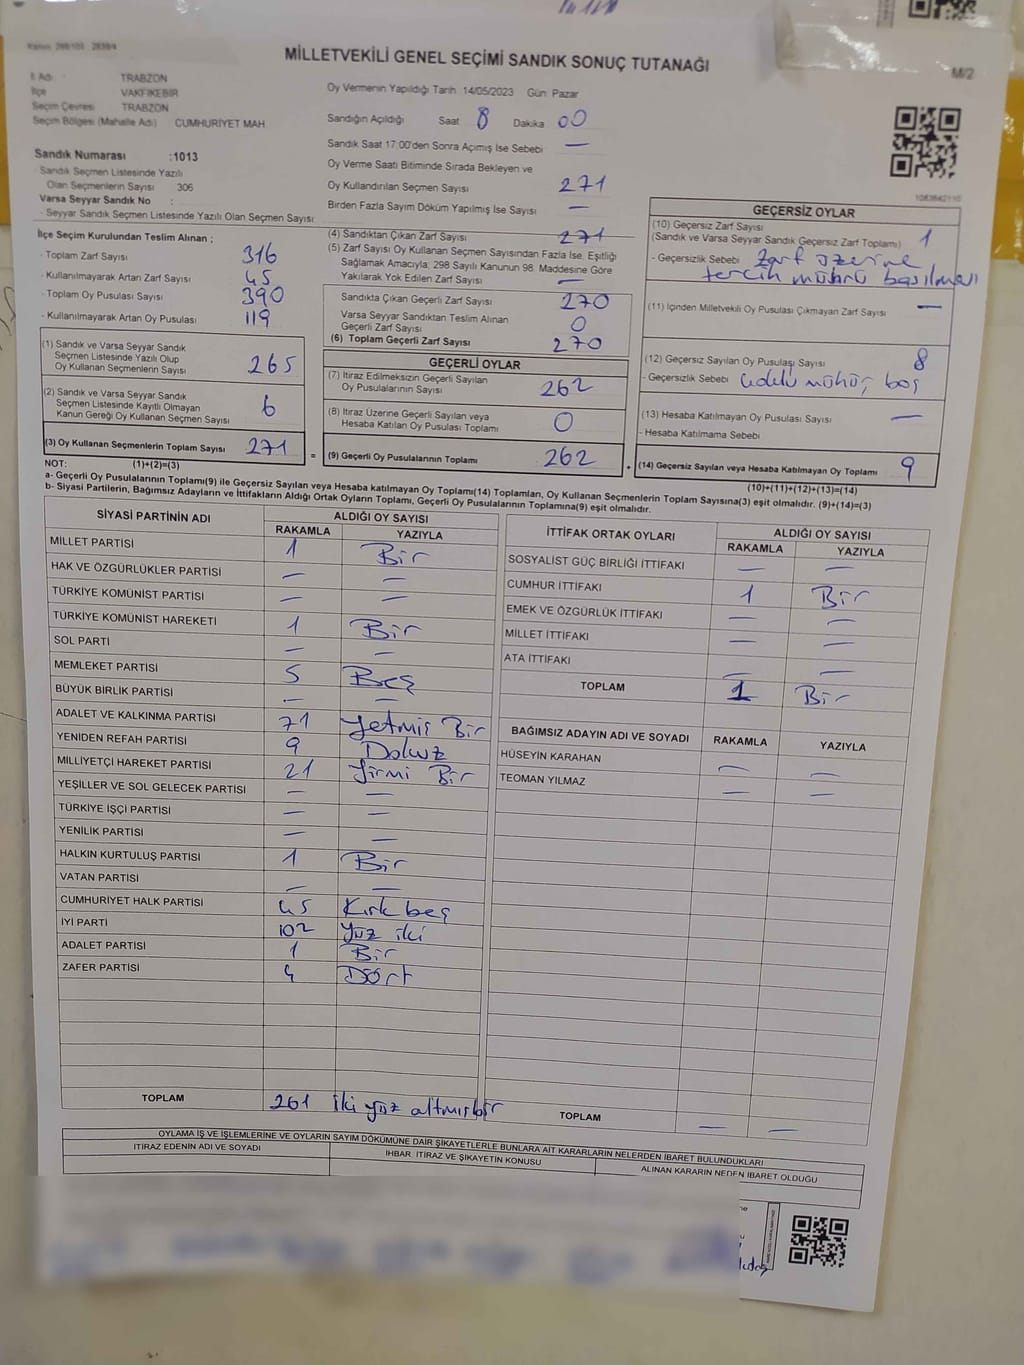 MİLLETVEKİLİ GENEL SEÇİMİ SANDIK SONUÇ TUTANAĞI
M/2
İl Adı : TRABZON
İlçe VAKFIKEBİR
Seçim Çevresi TRABZON
Seçim Bölgesi (Mahalle Adı) CUMHURİYET MAH.
Sandık Numarası :1013
- Sandık Seçmen Listesinde Yazılı
Olan Seçmenlerin Sayısı 306
Varsa Seyyar Sandık No :
- Seyyar Sandık Seçmen Listesinde Yazılı Olan Seçmen Sayısı:
Oy Vermenin Yapıldığı Tarih 14/05/2023 Gün: Pazar
Sandığın Açıldığı Saat 8 Dakika 00
Sandık Saat 17:00'den Sonra Açımış İse Sebebi —
Oy Verme Saati Bitiminde Sırada Bekleyen ve
Oy Kullandırılan Seçmen Sayısı 271
Birden Fazla Sayım Döküm Yapılmış İse Sayısı —
İlçe Seçim Kurulundan Teslim Alınan ;
- Toplam Zarf Sayısı 316
- Kullanılmayarak Artan Zarf Sayısı 45
- Toplam Oy Pusulası Sayısı 390
- Kullanılmayarak Artan Oy Pusulası 119
(1) Sandık ve Varsa Seyyar Sandık
Seçmen Listesinde Yazılı Olup
Oy Kullanan Seçmenlerin Sayısı 265
(2) Sandık ve Varsa Seyyar Sandık
Seçmen Listesinde Kayıtlı Olmayan
Kanun Gereği Oy Kullanan Seçmen Sayısı 6
(3) Oy Kullanan Seçmenlerin Toplam Sayısı 271
(4) Sandıktan Çıkan Zarf Sayısı 271
(5) Zarf Sayısı Oy Kullanan Seçmen Sayısından Fazla İse, Eşitliği
Sağlamak Amacıyla; 298 Sayılı Kanunun 98. Maddesine Göre
Yakılarak Yok Edilen Zarf Sayısı —
Sandıkta Çıkan Geçerli Zarf Sayısı 270
Varsa Seyyar Sandıktan Teslim Alınan
Geçerli Zarf Sayısı 0
(6) Toplam Geçerli Zarf Sayısı 270
GEÇERLİ OYLAR
(7) İtiraz Edilmeksizin Geçerli Sayılan
Oy Pusulalarının Sayısı 262
(8) İtiraz Üzerine Geçerli Sayılan veya
Hesaba Katılan Oy Pusulası Toplamı 0
= (9) Geçerli Oy Pusulalarının Toplamı 262
GEÇERSİZ OYLAR
(10) Geçersiz Zarf Sayısı
(Sandık ve Varsa Seyyar Sandık Geçersiz Zarf Toplamı) 1
- Geçersizlik Sebebi Zarf üzerine
tercih mührü basılması
(11) İçinden Milletvekili Oy Pusulası Çıkmayan Zarf Sayısı —
(12) Geçersiz Sayılan Oy Pusulası Sayısı 8
- Geçersizlik Sebebi mühür, boş
(13) Hesaba Katılmayan Oy Pusulası Sayısı —
- Hesaba Katılmama Sebebi
+ (14) Geçersiz Sayılan veya Hesaba Katılmayan Oy Toplamı 9
NOT: (1)+(2)=(3) (10)+(11)+(12)+(13)=(14)
a- Geçerli Oy Pusulalarının Toplamı(9) ile Geçersiz Sayılan veya Hesaba katılmayan Oy Toplamı(14) Toplamları, Oy Kullanan Seçmenlerin Toplam Sayısına(3) eşit olmalıdır. (9)+(14)=(3)
b- Siyasi Partilerin, Bağımsız Adayların ve İttifakların Aldığı Ortak Oyların Toplamı, Geçerli Oy Pusulalarının Toplamına(9) eşit olmalıdır.
SİYASİ PARTİNİN ADI ALDIĞI OY SAYISI
RAKAMLA YAZIYLA
MİLLET PARTİSİ 1 Bir
HAK VE ÖZGÜRLÜKLER PARTİSİ — —
TÜRKİYE KOMÜNİST PARTİSİ — —
TÜRKİYE KOMÜNİST HAREKETİ 1 Bir
SOL PARTİ — —
MEMLEKET PARTİSİ 5 Beş
BÜYÜK BİRLİK PARTİSİ — —
ADALET VE KALKINMA PARTİSİ 71 Yetmiş Bir
YENİDEN REFAH PARTİSİ 9 Dokuz
MİLLİYETÇİ HAREKET PARTİSİ 21 Yirmi Bir
YEŞİLLER VE SOL GELECEK PARTİSİ — —
TÜRKİYE İŞÇİ PARTİSİ — —
YENİLİK PARTİSİ — —
HALKIN KURTULUŞ PARTİSİ 1 Bir
VATAN PARTİSİ — —
CUMHURİYET HALK PARTİSİ 45 Kırk beş
İYİ PARTİ 102 Yüz iki
ADALET PARTİSİ 1 Bir
ZAFER PARTİSİ 4 Dört
TOPLAM 261 iki yüz altmışbir
İTTİFAK ORTAK OYLARI ALDIĞI OY SAYISI
RAKAMLA YAZIYLA
SOSYALİST GÜÇ BİRLİĞİ İTTİFAKI — —
CUMHUR İTTİFAKI 1 Bir
EMEK VE ÖZGÜRLÜK İTTİFAKI — —
MİLLET İTTİFAKI — —
ATA İTTİFAKI — —
TOPLAM 1 Bir
BAĞIMSIZ ADAYIN ADI VE SOYADI RAKAMLA YAZIYLA
HÜSEYİN KARAHAN — —
TEOMAN YILMAZ — —
TOPLAM — —
OYLAMA İŞ VE İŞLEMLERİNE VE OYLARIN SAYIM DÖKÜMÜNE DAİR ŞİKAYETLERLE BUNLARA AİT KARARLARIN NELERDEN İBARET BULUNDUKLARI
İTİRAZ EDENİN ADI VE SOYADI İHBAR, İTİRAZ VE ŞİKAYETİN KONUSU ALINAN KARARIN NEDEN İBARET OLDUĞU